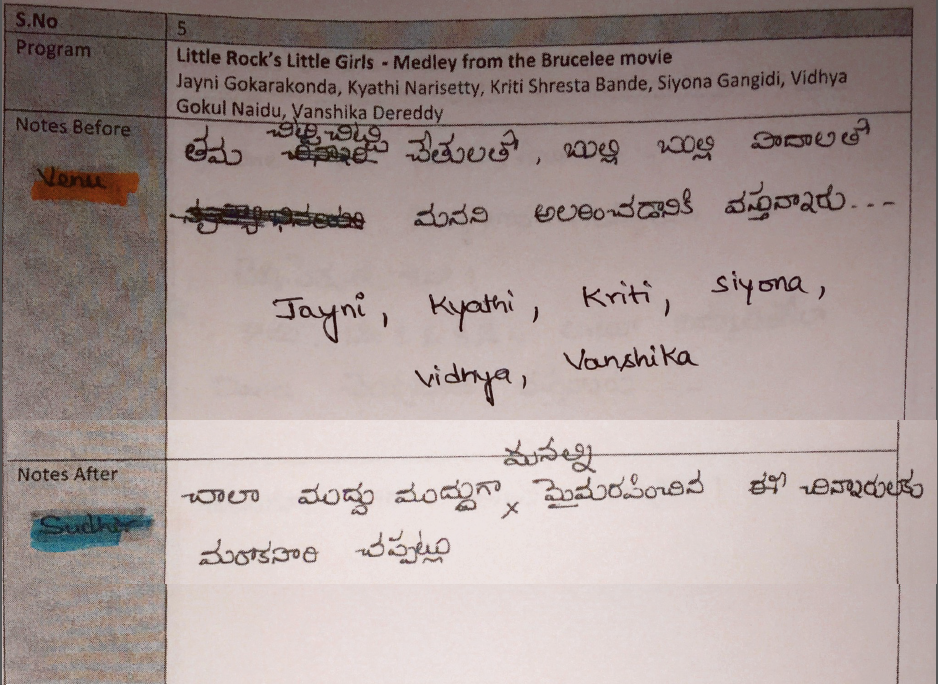 S.No 5
Program
Little Rock's Little Girls - Medley from the Brucelee movie
Jayni Gokarakonda, Kyathi Narisetty, Kriti Shresta Bande, Siyona Gangidi, Vidhya
Gokul Naidu, Vanshika Dereddy
Notes Before
Venu
చిట్టి చిట్టి
తమ చేతులతో, బుల్లి బుల్లి పాదాలతో
మనని అలరించడానికి వస్తున్నారు...
Jayni, Kyathi, Kriti, Siyona,
Vidhya, Vanshika
Notes After
Sudhir
మనల్ని
చాలా ముద్దు ముద్దుగా x మైమరపించిన ఈ చిన్నారులకు
మరొకసారి చప్పట్లు